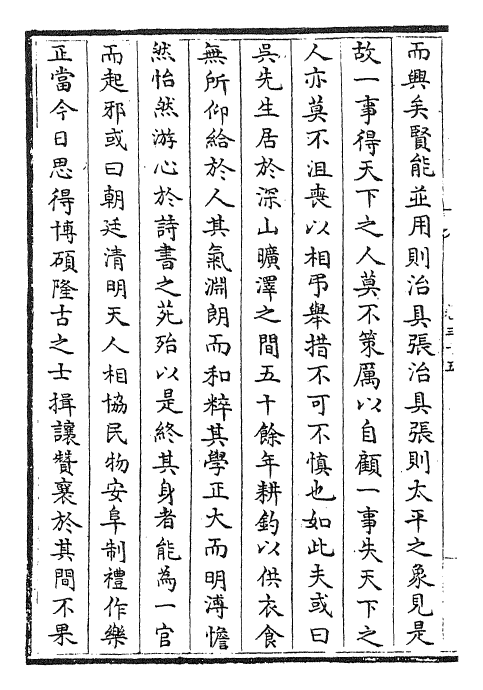 而興矣賢能並用則治具張治具張則太平之象見是
故一事得天下之人莫不策厲以自顧一事失天下之
人亦莫不沮喪以相弔舉措不可不慎也如此夫或曰
吳先生居於深山曠澤之間五十餘年耕釣以供衣食
無所仰給於人其氣淵朗而和粹其學正大而明溥憺
然怡然游心於詩書之苑殆以是終其身者能為一官
而起邪或曰朝廷清明天人相協民物安阜制禮作樂
正當今日思得博碩隆古之士揖讓贊襄於其間不果